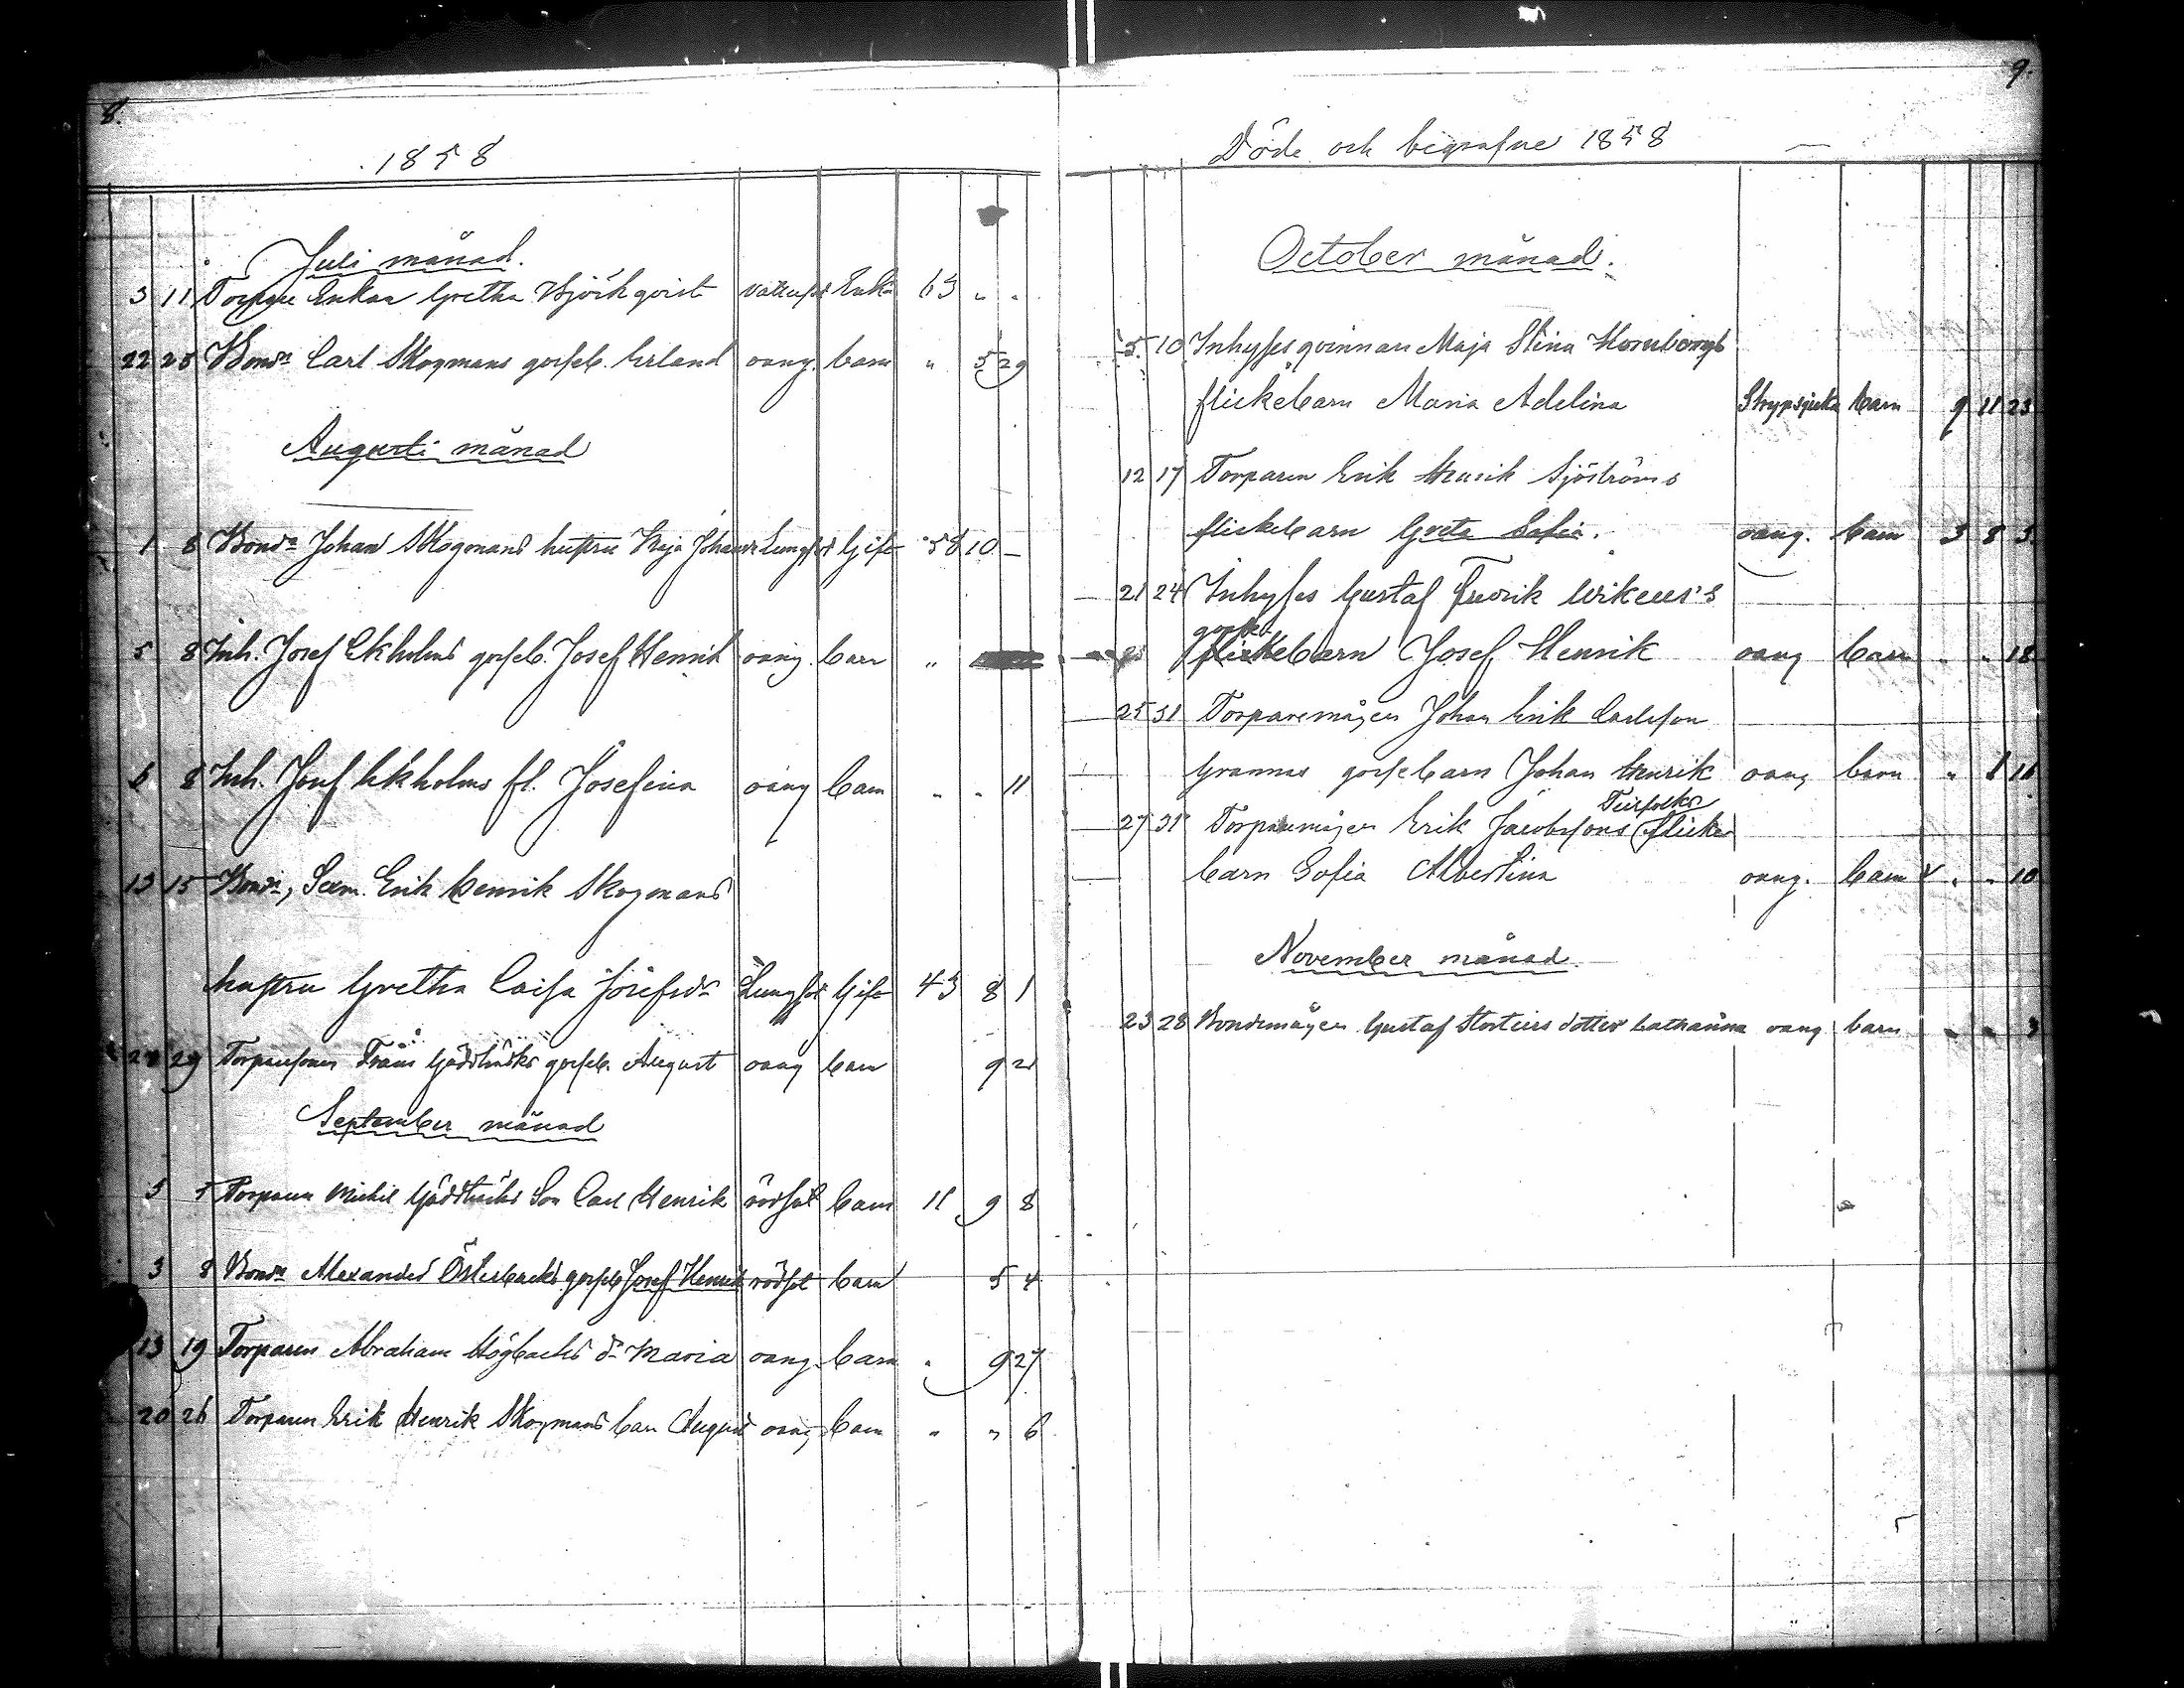 8.
1858
Juli månad.
3 11 Torpare Enkan Gretha Björkqvist Enka 63 " "
22 25 Bond. Carl Skogmans gosseb. Erland oang. barn " 5 29
Augusti månad
1 8 Bond. Johan Skogmans hustru Maja Johansdr Lungsot Gift 58 10 —
5 8 Inh. Josef Ekholms gosseb. Josef Henrik oang. barn "
6 8 Inh. Josef Ekholms fl. Josefina oang barn " " 11
13 15 Bond., Sexm. Erik Henrik Skogmans
hustru Gretha Caisa Josefsdr Lungsot Gift 43 8 1
29 Frans gosseb. August oang barn 9 21
September månad
3 5 Torparen Michel Son Carl Henrik rödsot barn 11 9 8
3 8 Bond. Alexanders Österbacks gosseb Josef Henrik rödsot barn 5 4
13 19 Torparen Abraham Högbacks dr Maria oang. barn " 9 27
20 26 Torparen Erik Henrik Skogmans barn August oang barn " " 6
9.
Döde och begrafne 1858
October månad.
5. 10 Inhyses qvinnan Maja Stina Hornborgs
flickebarn Maria Adelina Strypsjuka barn 9 11 23
12 17 Torparen Erik Henrik Sjöströms
flickebarn Greta Sofia. oang. barn 3 8 3
21 24 Inhyses Gustaf Fredrik Wikens's
gosse
flickebarn Josef Henrik oang barn " " 18
25 31 Torparemågen Johan Erik Carlsson
Grannas gossebarn Johan Henrik oang barn " 1 16
27 31 Torparemågen Erik Jacobssons flicke
barn Sofia Albertina oang. barn " " 10
November månad.
23 28 Bondemågen Gustaf Storteirs dotter Catharina oang barn " " 3